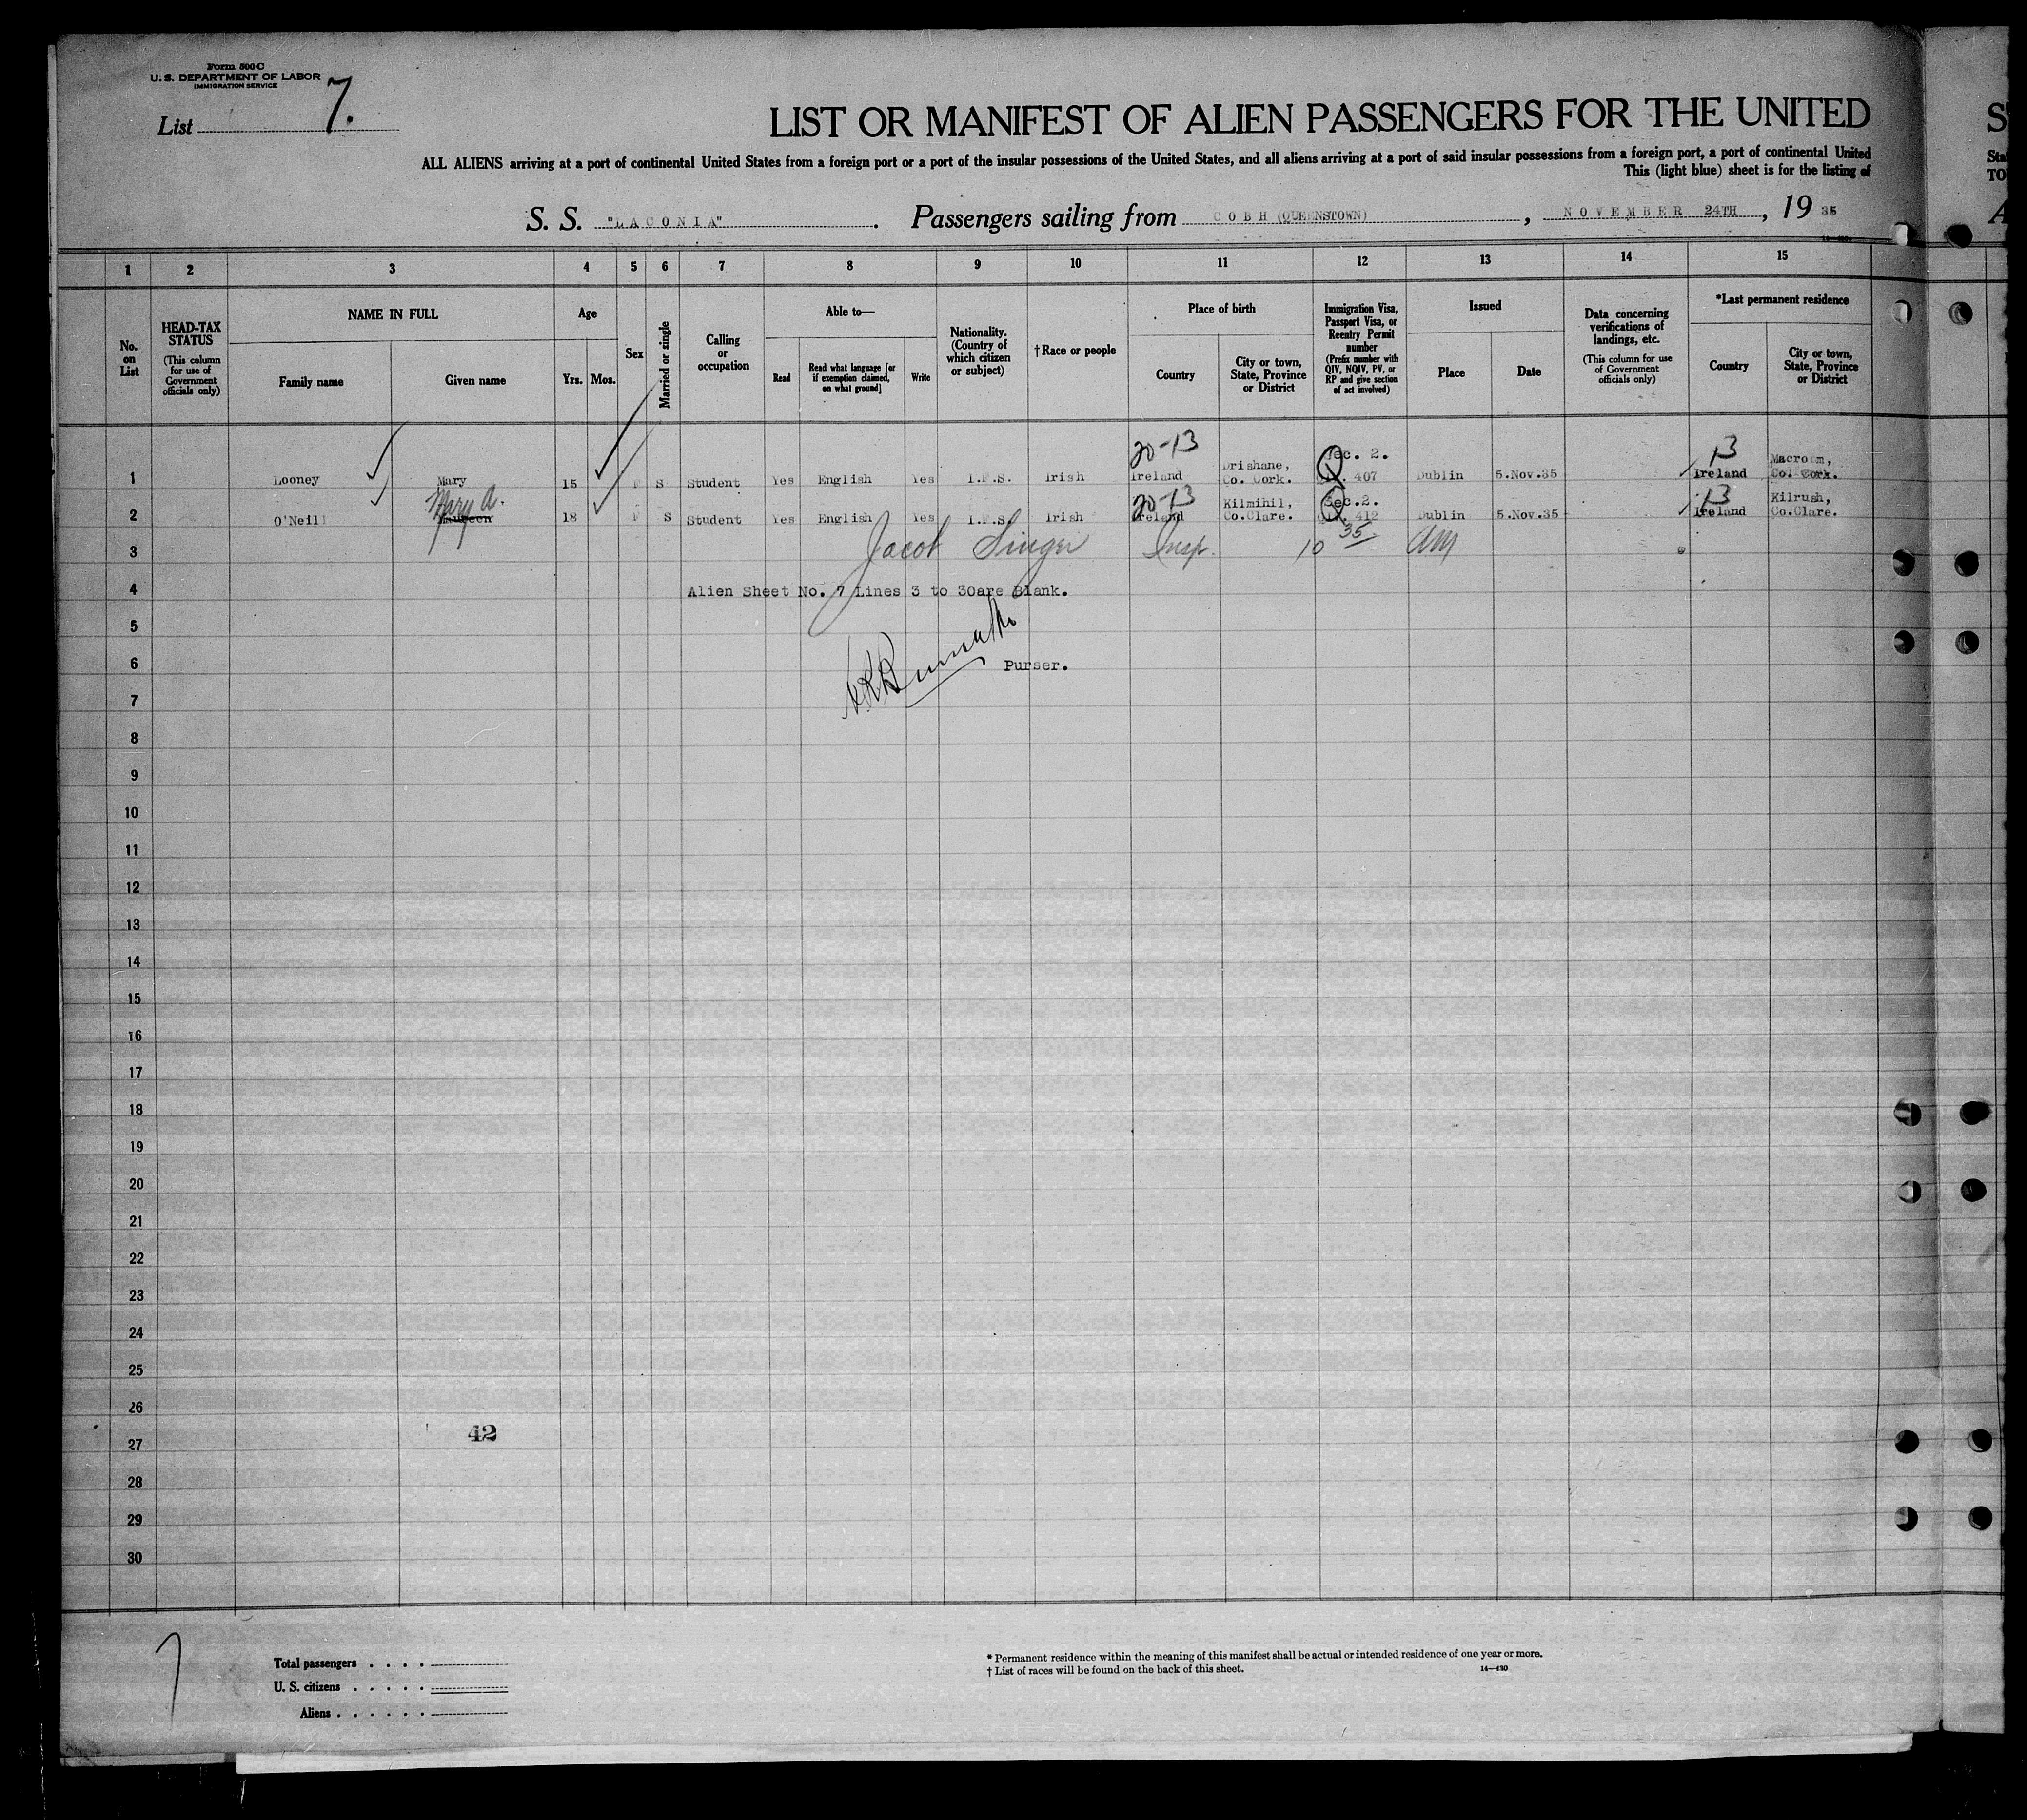 Form 500 C
U. S. DEPARTMENT OF LABOR
IMMIGRATION SERVICE
List 7.
LIST OR MANIFEST OF ALIEN PASSENGERS FOR THE UNITED
ALL ALIENS arriving at a port of continental United States from a foreign port or a port of the insular possessions of the United States, and all aliens arriving at a port of said insular possessions from a foreign port, a port of continental United
This (light blue) sheet is for the listing of
S. S. "LACONIA". Passengers sailing from COBH (QUEENSTOWN), NOVEMBER 24TH, 19 35
1 2 3 4 5 6 7 8 9 10 11 12 13 14 15
No. on List
HEAD-TAX STATUS
(This column for use of Government officials only)
NAME IN FULL
Family name
Given name
Age
Yrs. Mos.
Sex
Married or single
Calling or occupation
Able to—
Read
Read what language [or if exemption claimed, on what ground]
Write
Nationality. (Country of which citizen or subject)
† Race or people
Place of birth
Country
City or town, State, Province or District
Immigration Visa, Passport Visa, or Reentry Permit number
(Prefix number with QIV, NQIV, PV, or RP and give section of act involved)
Issued
Place
Date
Data concerning verifications of landings, etc.
(This column for use of Government officials only)
*Last permanent residence
Country
City or town, State, Province or District
20-13 Sec. 2. 13
1 Looney Mary 15 F S Student Yes English Yes I.F.S. Irish Ireland Drishane, Co. Cork. 407 Dublin 5.Nov.35 Ireland Macroom, Co. Cork.
Mary A. 20-13 Sec.2. 13
2 O'Neill Maureen 18 F S Student Yes English Yes I.F.S. Irish Ireland Kilmihil, Co.Clare. 412 Dublin 5.Nov.35 Ireland Kilrush, Co.Clare.
3 Jacob Singer Insp. 10 35 AM
4 Alien Sheet No. 7 Lines 3 to 30are Blank.
5
6 Purser.
7
8
9
10
11
12
13
14
15
16
17
18
19
20
21
22
23
24
25
26
42
27
28
29
30
7
Total passengers
U. S. citizens
Aliens
* Permanent residence within the meaning of this manifest shall be actual or intended residence of one year or more.
† List of races will be found on the back of this sheet.
14—430